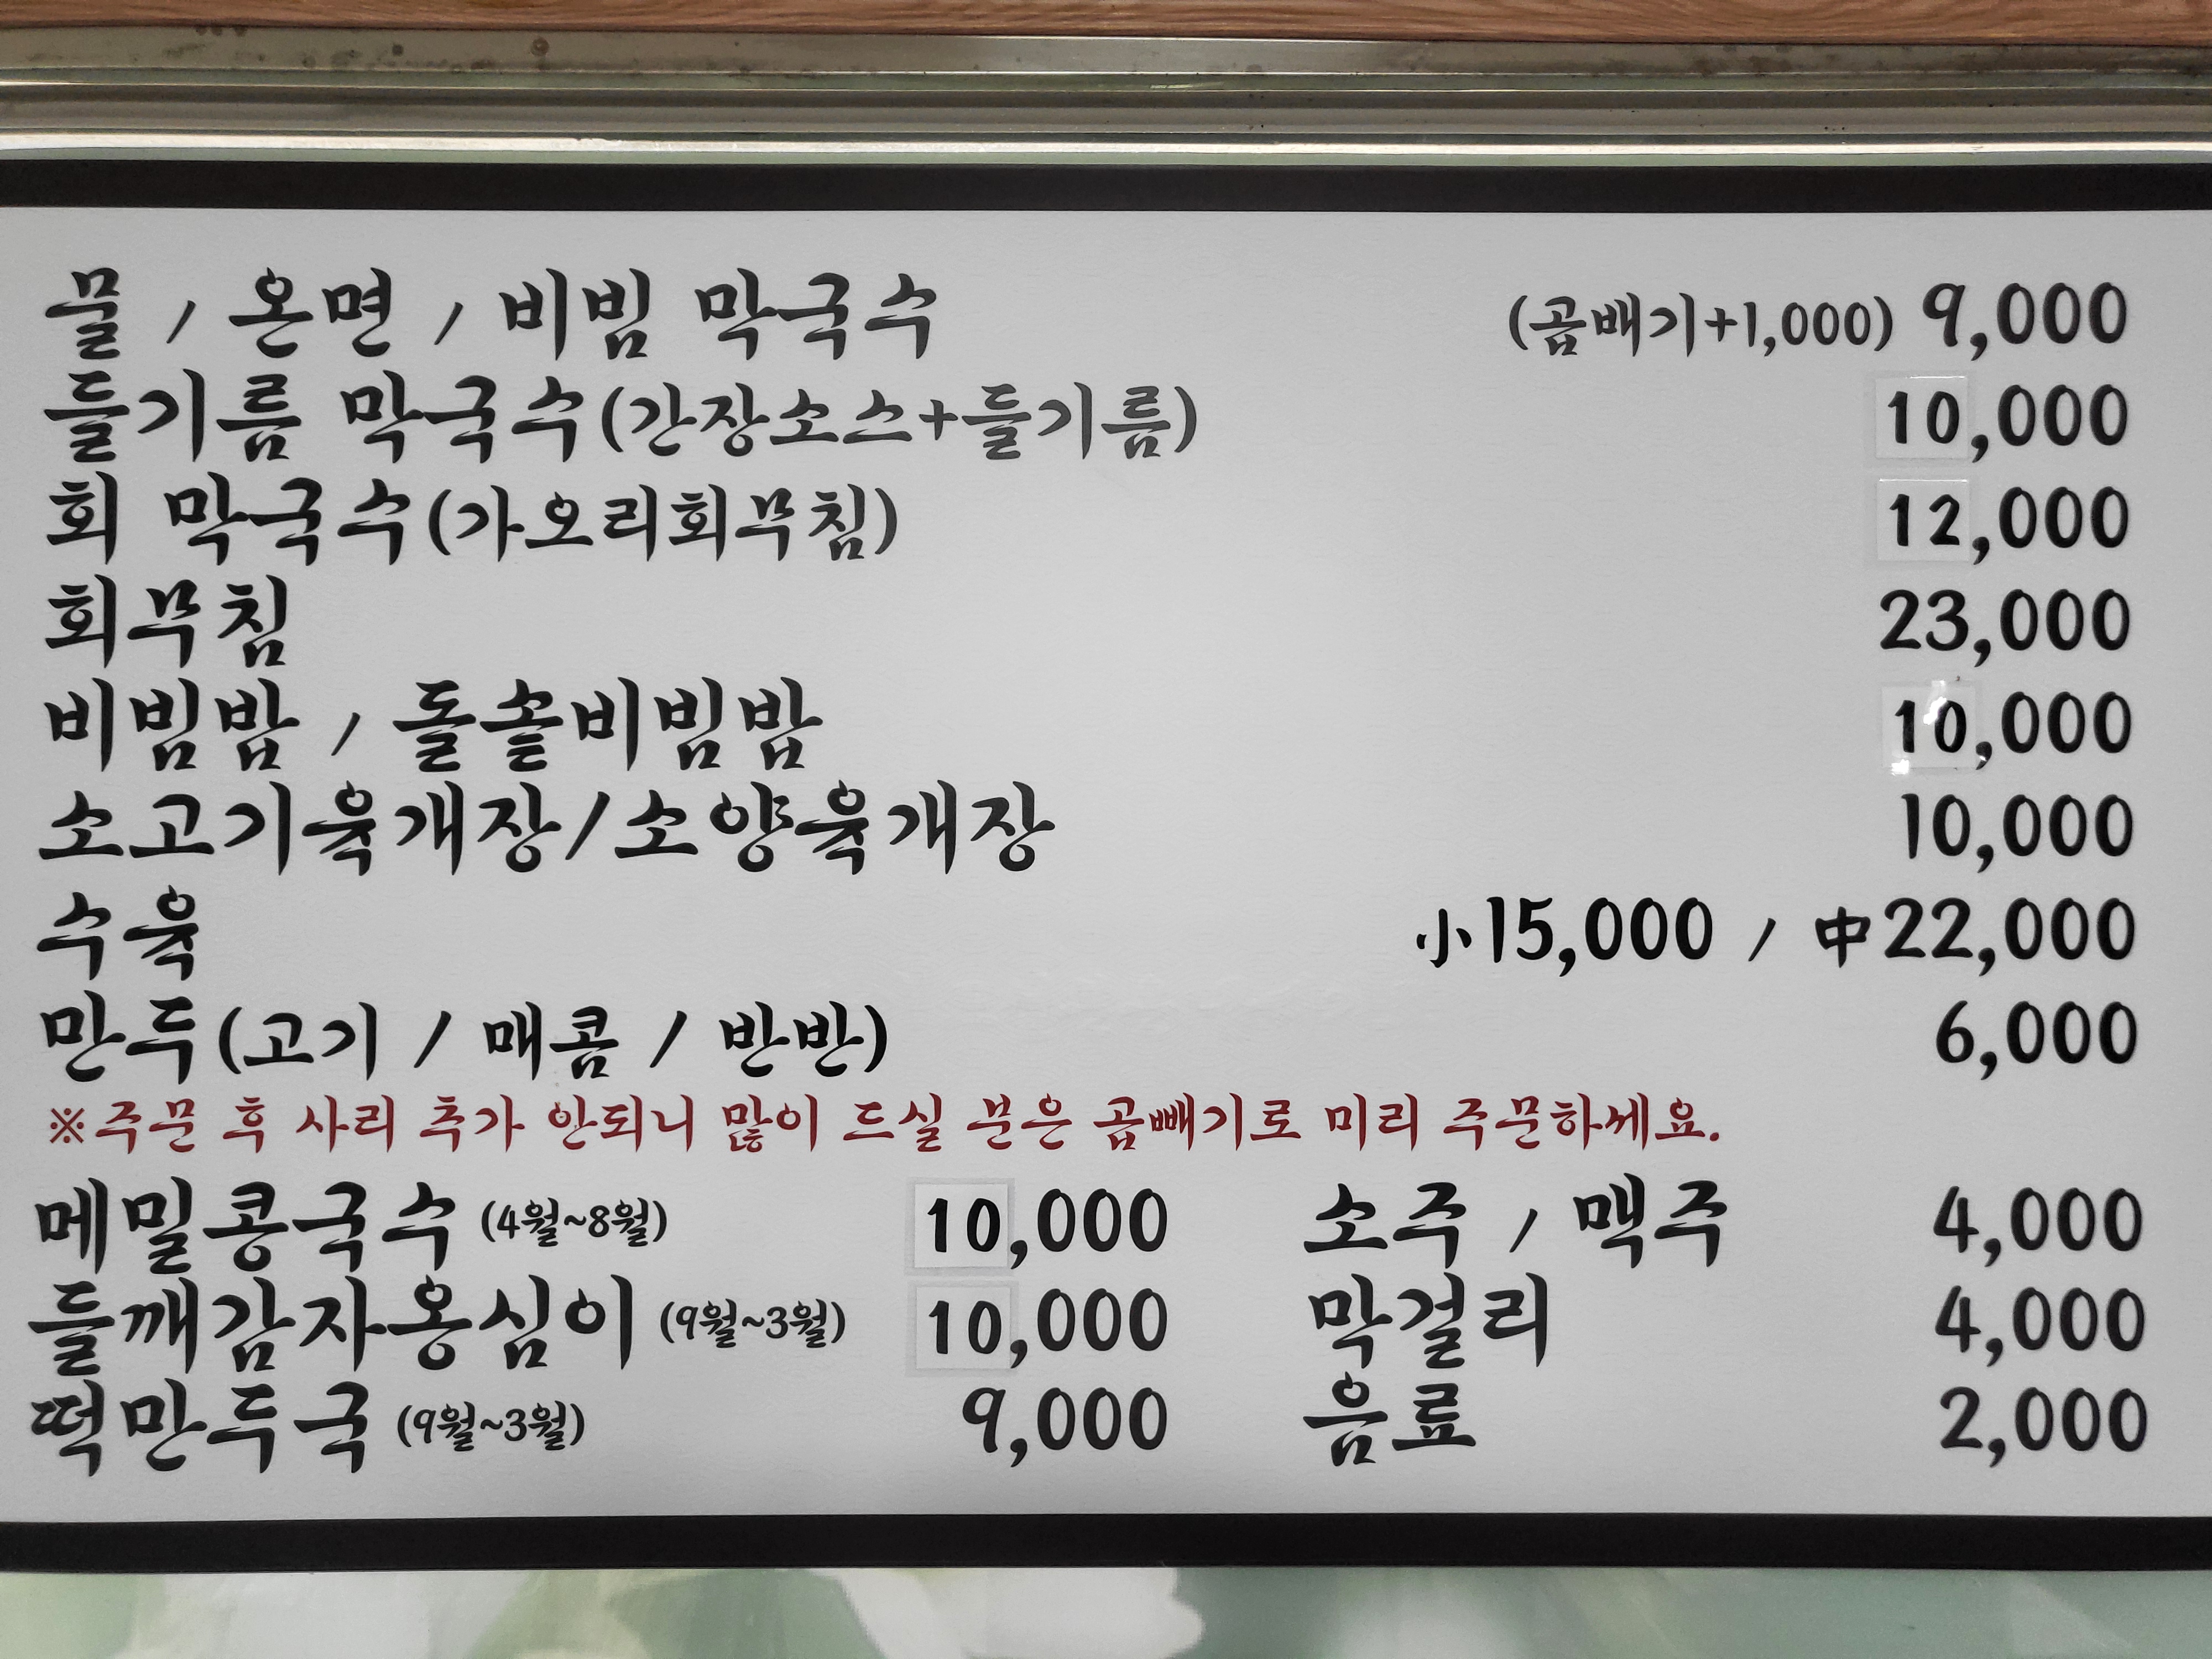 물 / 온면 / 비빔 막국수 (곱배기+1,000) 9,000
들기름 막국수(간장소스+들기름) 10,000
회 막국수(가오리회무침) 12,000
회무침 23,000
비빔밥 / 돌솥비빔밥 10,000
소고기육개장/소양육개장 10,000
수육 小15,000 / 中22,000
만두(고기 / 매콤 / 반반) 6,000
※주문 후 사리 추가 안되니 많이 드실 분은 곱빼기로 미리 주문하세요.
메밀콩국수 (4월~8월) 10,000 소주 / 맥주 4,000
들깨감자옹심이 (9월~3월) 10,000 막걸리 4,000
떡만두국 (9월~3월) 9,000 음료 2,000